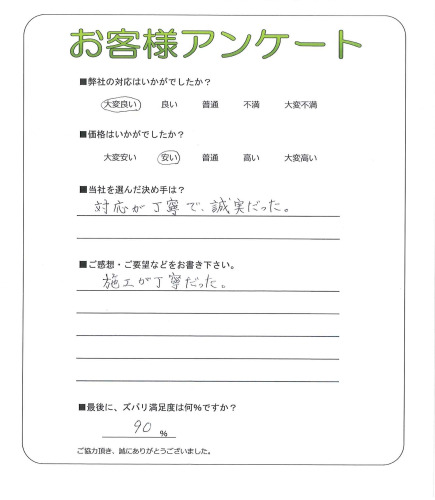 お客様アンケート
■弊社の対応はいかがでしたか？
大変良い 良い 普通 不満 大変不満
■価格はいかがでしたか？
大変安い 安い 普通 高い 大変高い
■当社を選んだ決め手は？
対応が丁寧で、誠実だった。
■ご感想・ご要望などをお書き下さい。
施工が丁寧だった。
■最後に、ズバリ満足度は何%ですか？
90 %
ご協力頂き、誠にありがとうございました。